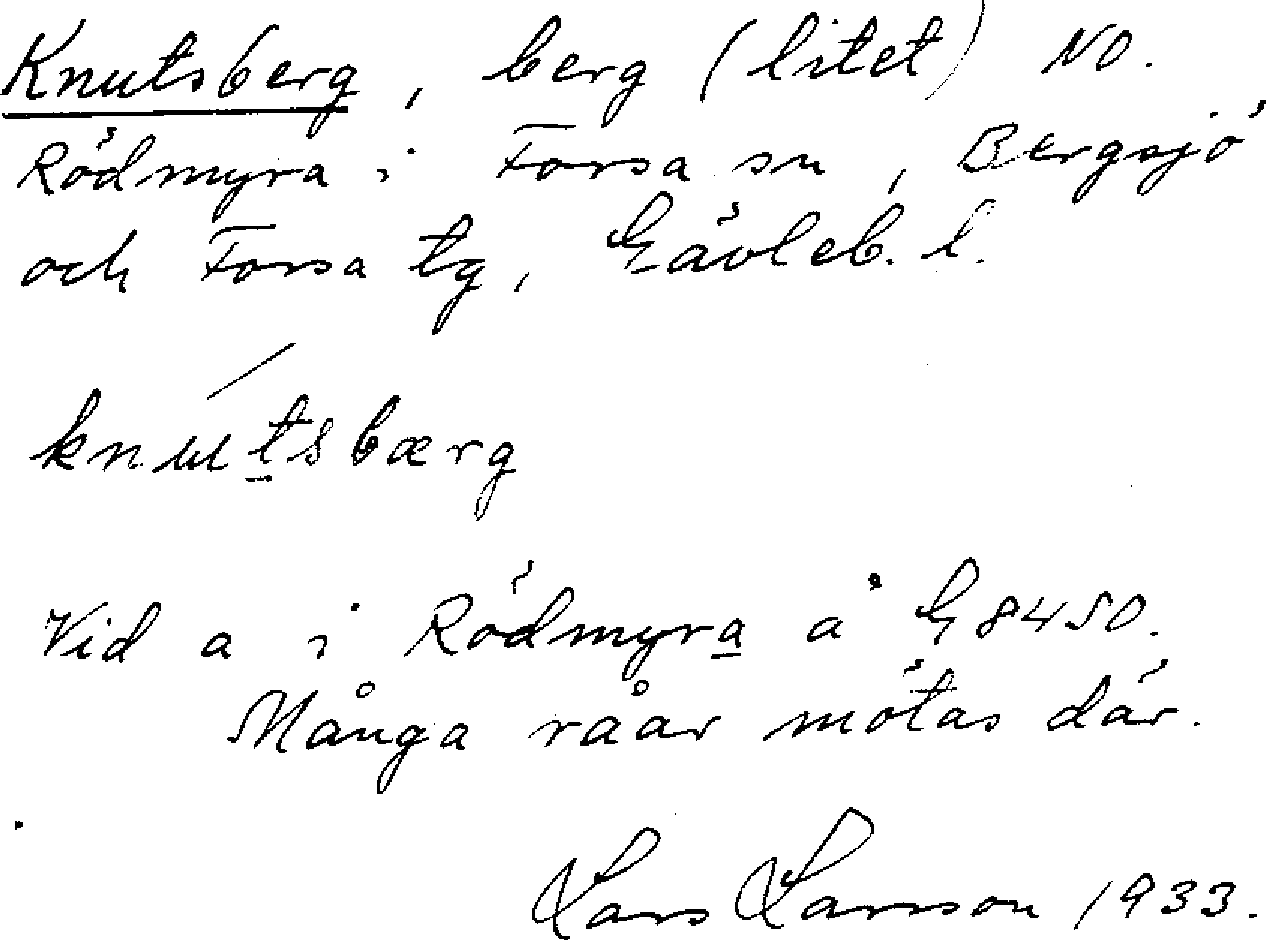 Knutsberg, berg (litet) NO.
Rödmyra i Forsa sn, Bergsjö
och Forsa tg, Gävleb. l.
knútsbærg
Vid a i Rödmyra å G 8450.
Många råar mötas där.
Lars Larsson 1933.